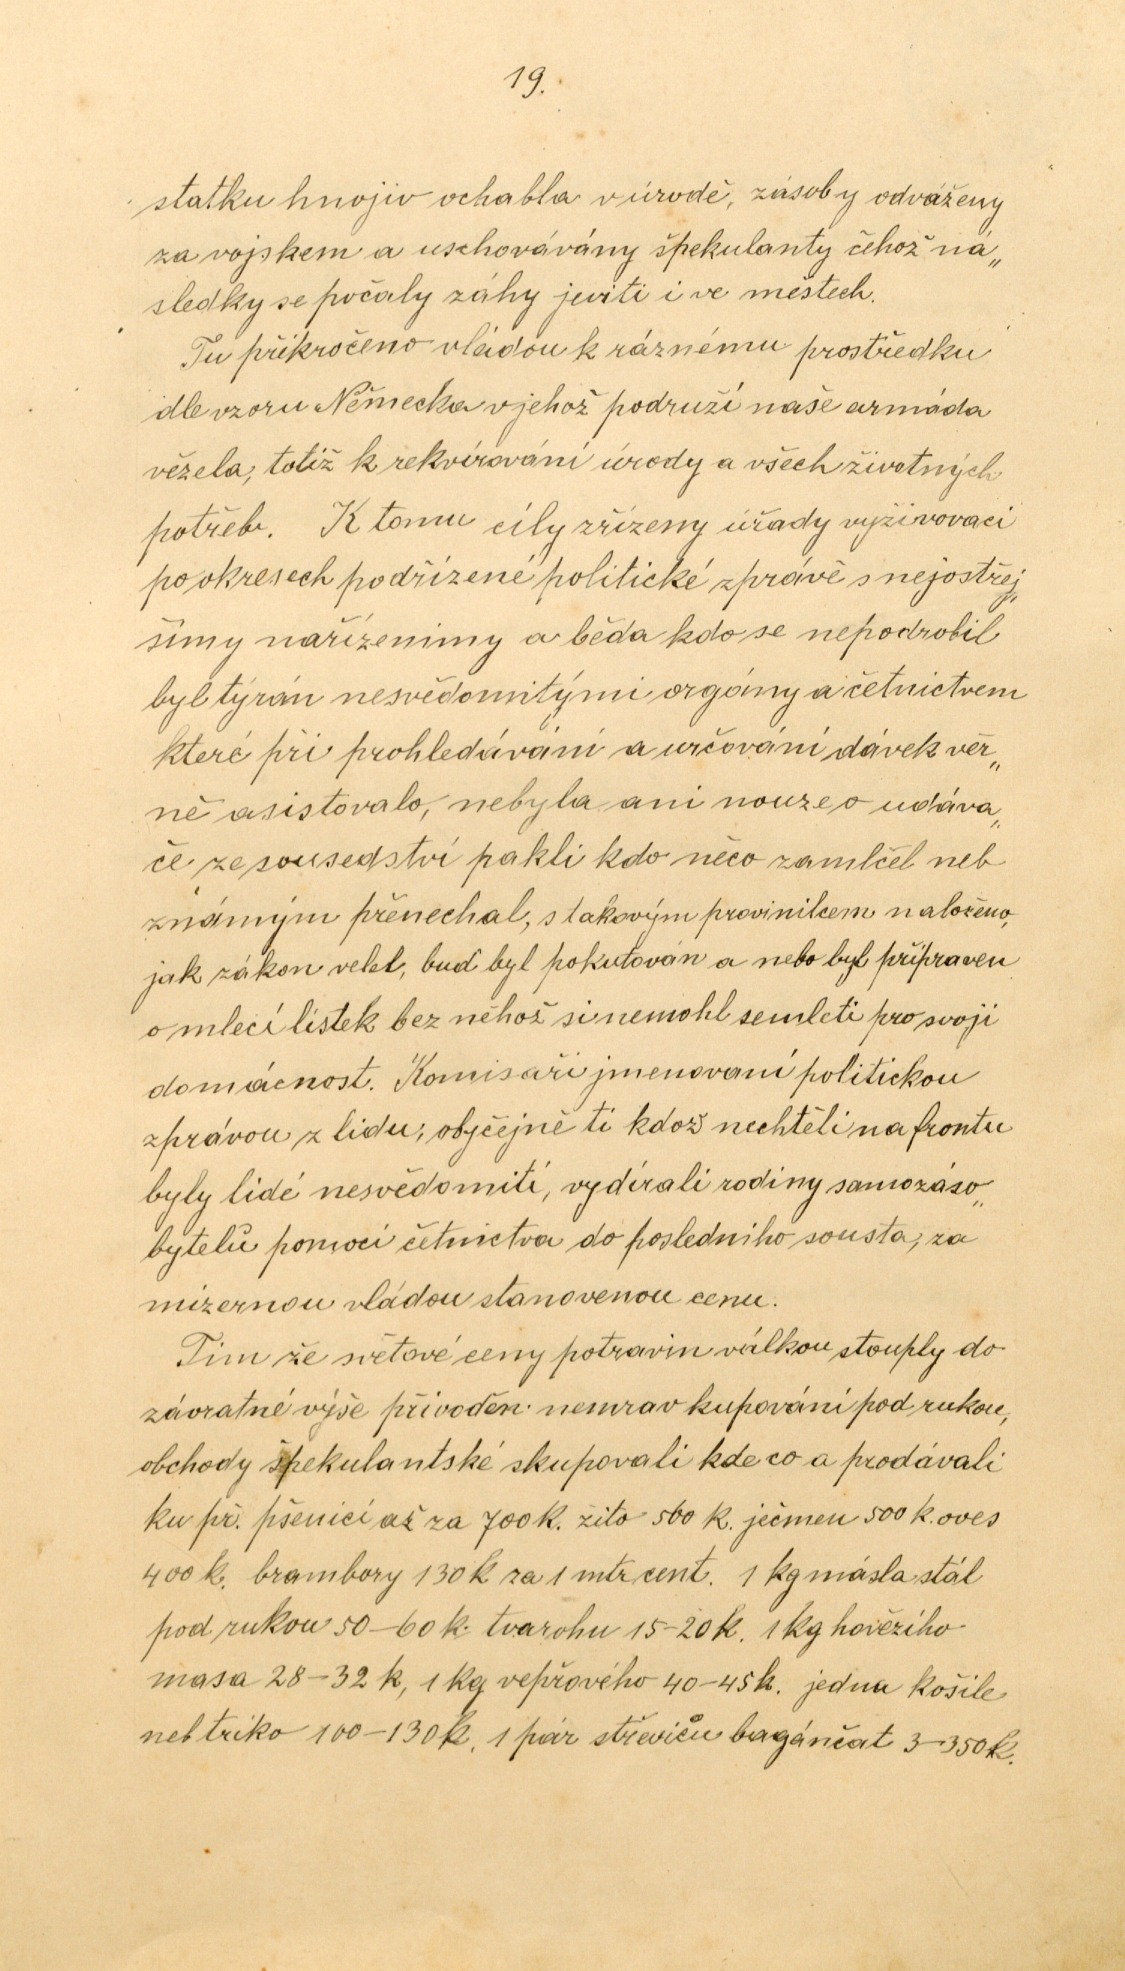 19.
statku hnojiv ochabla v úrodě, zásoby odváženy
za vojskem a uschovávány špekulanty čehož ná„
sledky se počaly záhy jeviti i ve městech.
Tu přikročeno vládou k ráznému prostředku
dle vzoru Německa v jehož podruží naše armáda
vězela, totiž k rekvírování úrody a všech životných
potřeb. K tomu cíly zřízeny úřady vyživovací
po okresech podřízené politické zprávě s nejostřej„
šímy nařízenimy a běda kdo se nepodrobil
byl týrán nesvědomitými orgány a četnictvem
které při prohledávání a určování dávek věr„
ně asistovalo, nebyla ani nouze o udáva„
če ze sousedství pakli kdo něco zamlčel neb
známým přenechal, s takovým provinilcem naloženo,
jak zákon velel, buď byl pokutován a nebo byl připraven
o mlecí lístek bez něhož si nemohl semleti pro svoji
domácnost. Komisaři jmenovaní politickou
zprávou z lidu, obyčejně ti kdož nechtěli na frontu
byly lidé nesvědomití, vydírali rodiny samozáso„
bytelů pomocí četnictva do posledního sousta, za
mizernou vládou stanovenou cenu.
Tím že světové ceny potravin válkou stouply do
závratné výše přivoděn nemrav kupování pod rukou,
obchody špekulantské skupovali kde co a prodávali
ku př. pšenici až za 700 k. žito 560 k. ječmen 500 k. oves
400 k. brambory 130 k za 1 mtr cent. 1 kg másla stál
pod rukou 50–60 k. tvarohu 15–20 k. 1 kg hovězího
masa 28–32 k, 1 kg vepřového 40–45 k. jedna košile
neb triko 100–130 k. 1 pár střevíců bagančat 3–350 k.